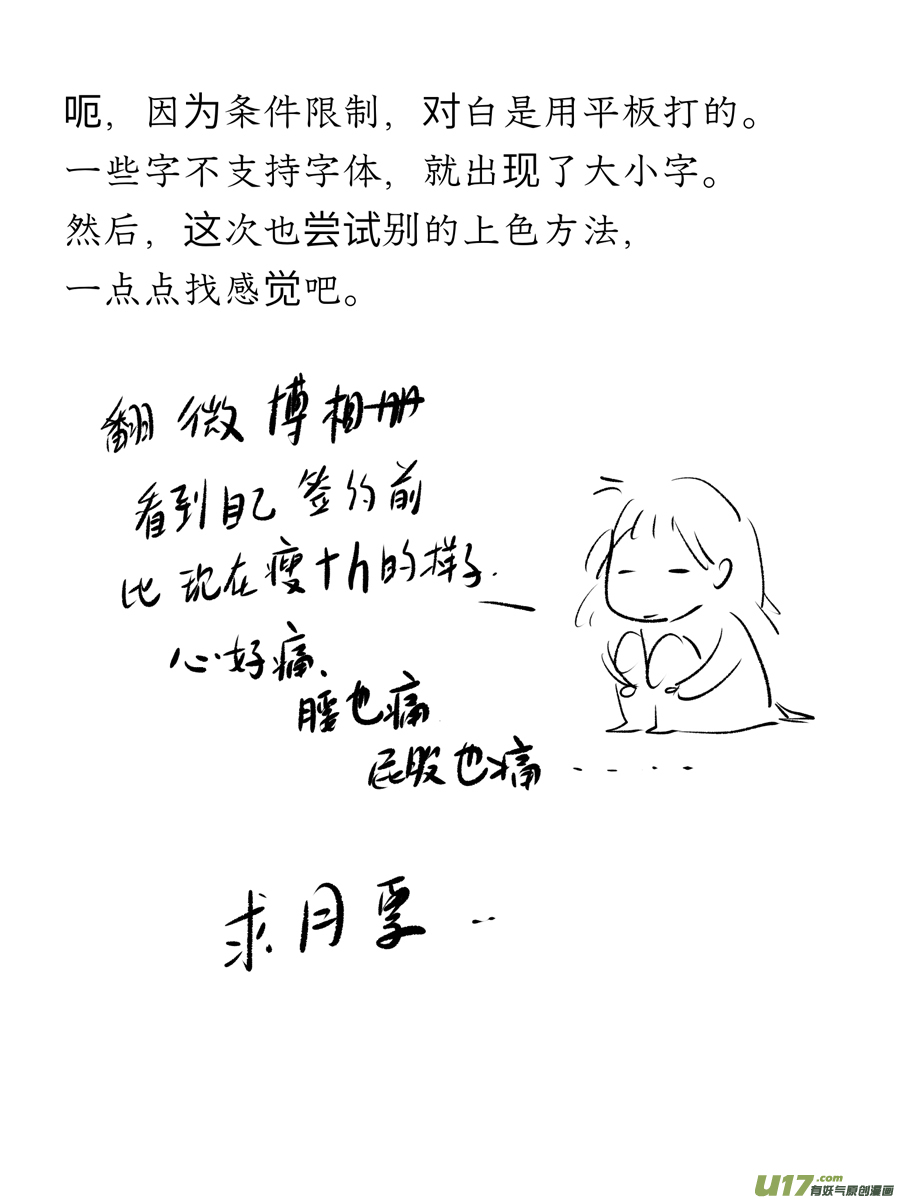 呃，因为条件限制，对白是用平板打的。
一些字不支持字体，就出现了大小字。
然后，这次也尝试别的上色方法，
一点点找感觉吧。
翻微博相册
看到自己签约前
比现在瘦十斤的样子.
心好痛、
腰也痛
屁股也痛.....
求月票...
U17.com
有妖气原创漫画